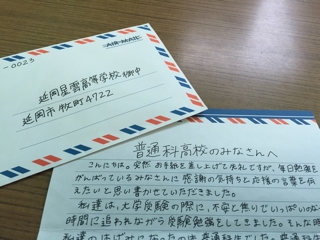 AIR-MAIL
-0023
延岡星雲高等学校 御中
延岡市牧町4722
普通科高校のみなさんへ
こんにちは。突然お手紙を差し上げて失礼ですが、毎日勉強を
がんばっているみなさんに感謝の気持ちと応援の言葉を伝
えたいと思い書かせていただきました。
私達は、大学受験の際に、不安と焦りでいっぱいの
時間に追われながら受験勉強をしてきました。そんな時
私達のはげみになったのは